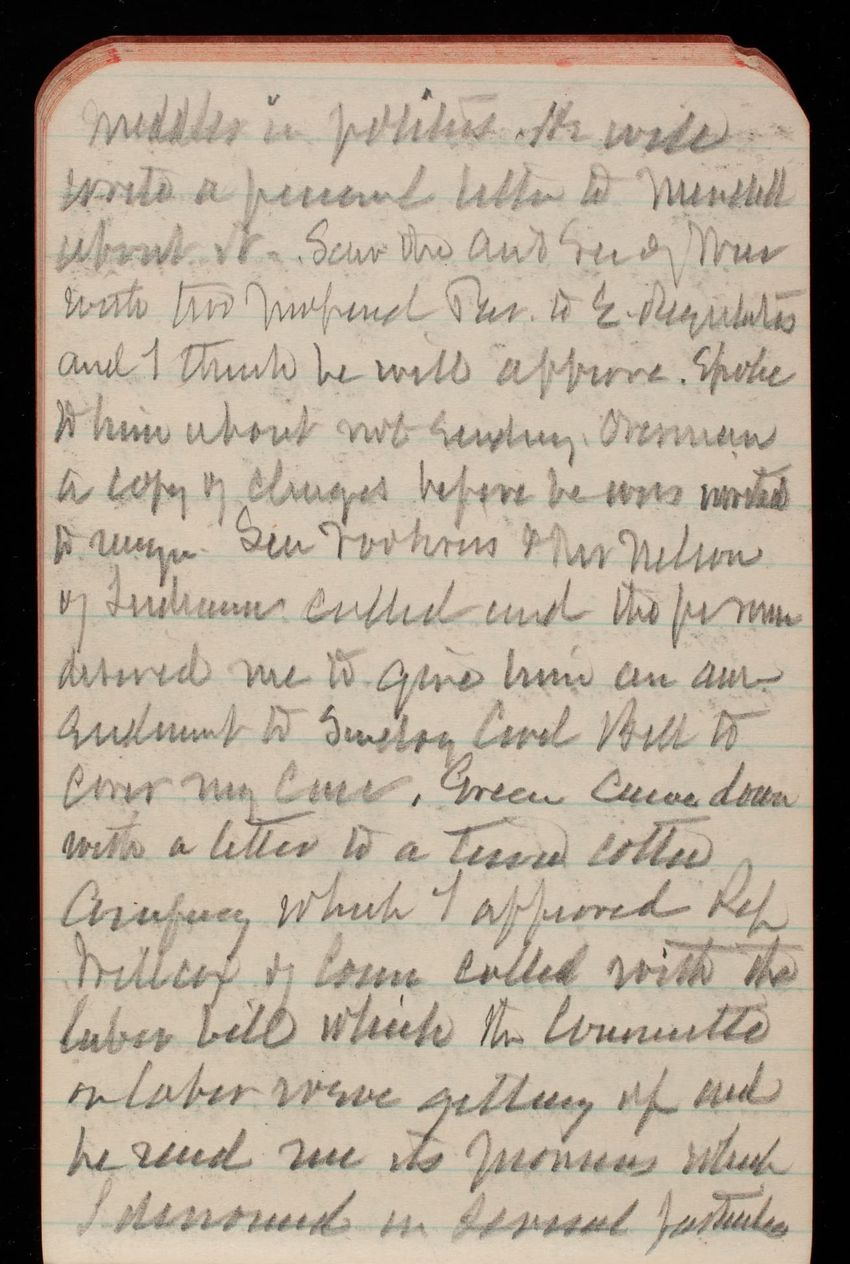 meddler in politics. He will
write a personal letter to Mendell
about it. Saw the Asst Sec of War
with two proposed Par. to E. Regulations
and I think he will approve. Spoke
to him about not sending Overman
a copy of charges before he was invited
to resign. Sen Voohrees & Rev Nelson
of Indiana called and the former
desired me to give him an am-
endment to Sundry Civil Bill to
cover my case. Green came down
with a letter to a terra cotta
Company which I approved Rep
Willcox of Conn called with the
labor bill which the Committee
on labor were getting up and
he read me its provisions which
I denounced in several particulars